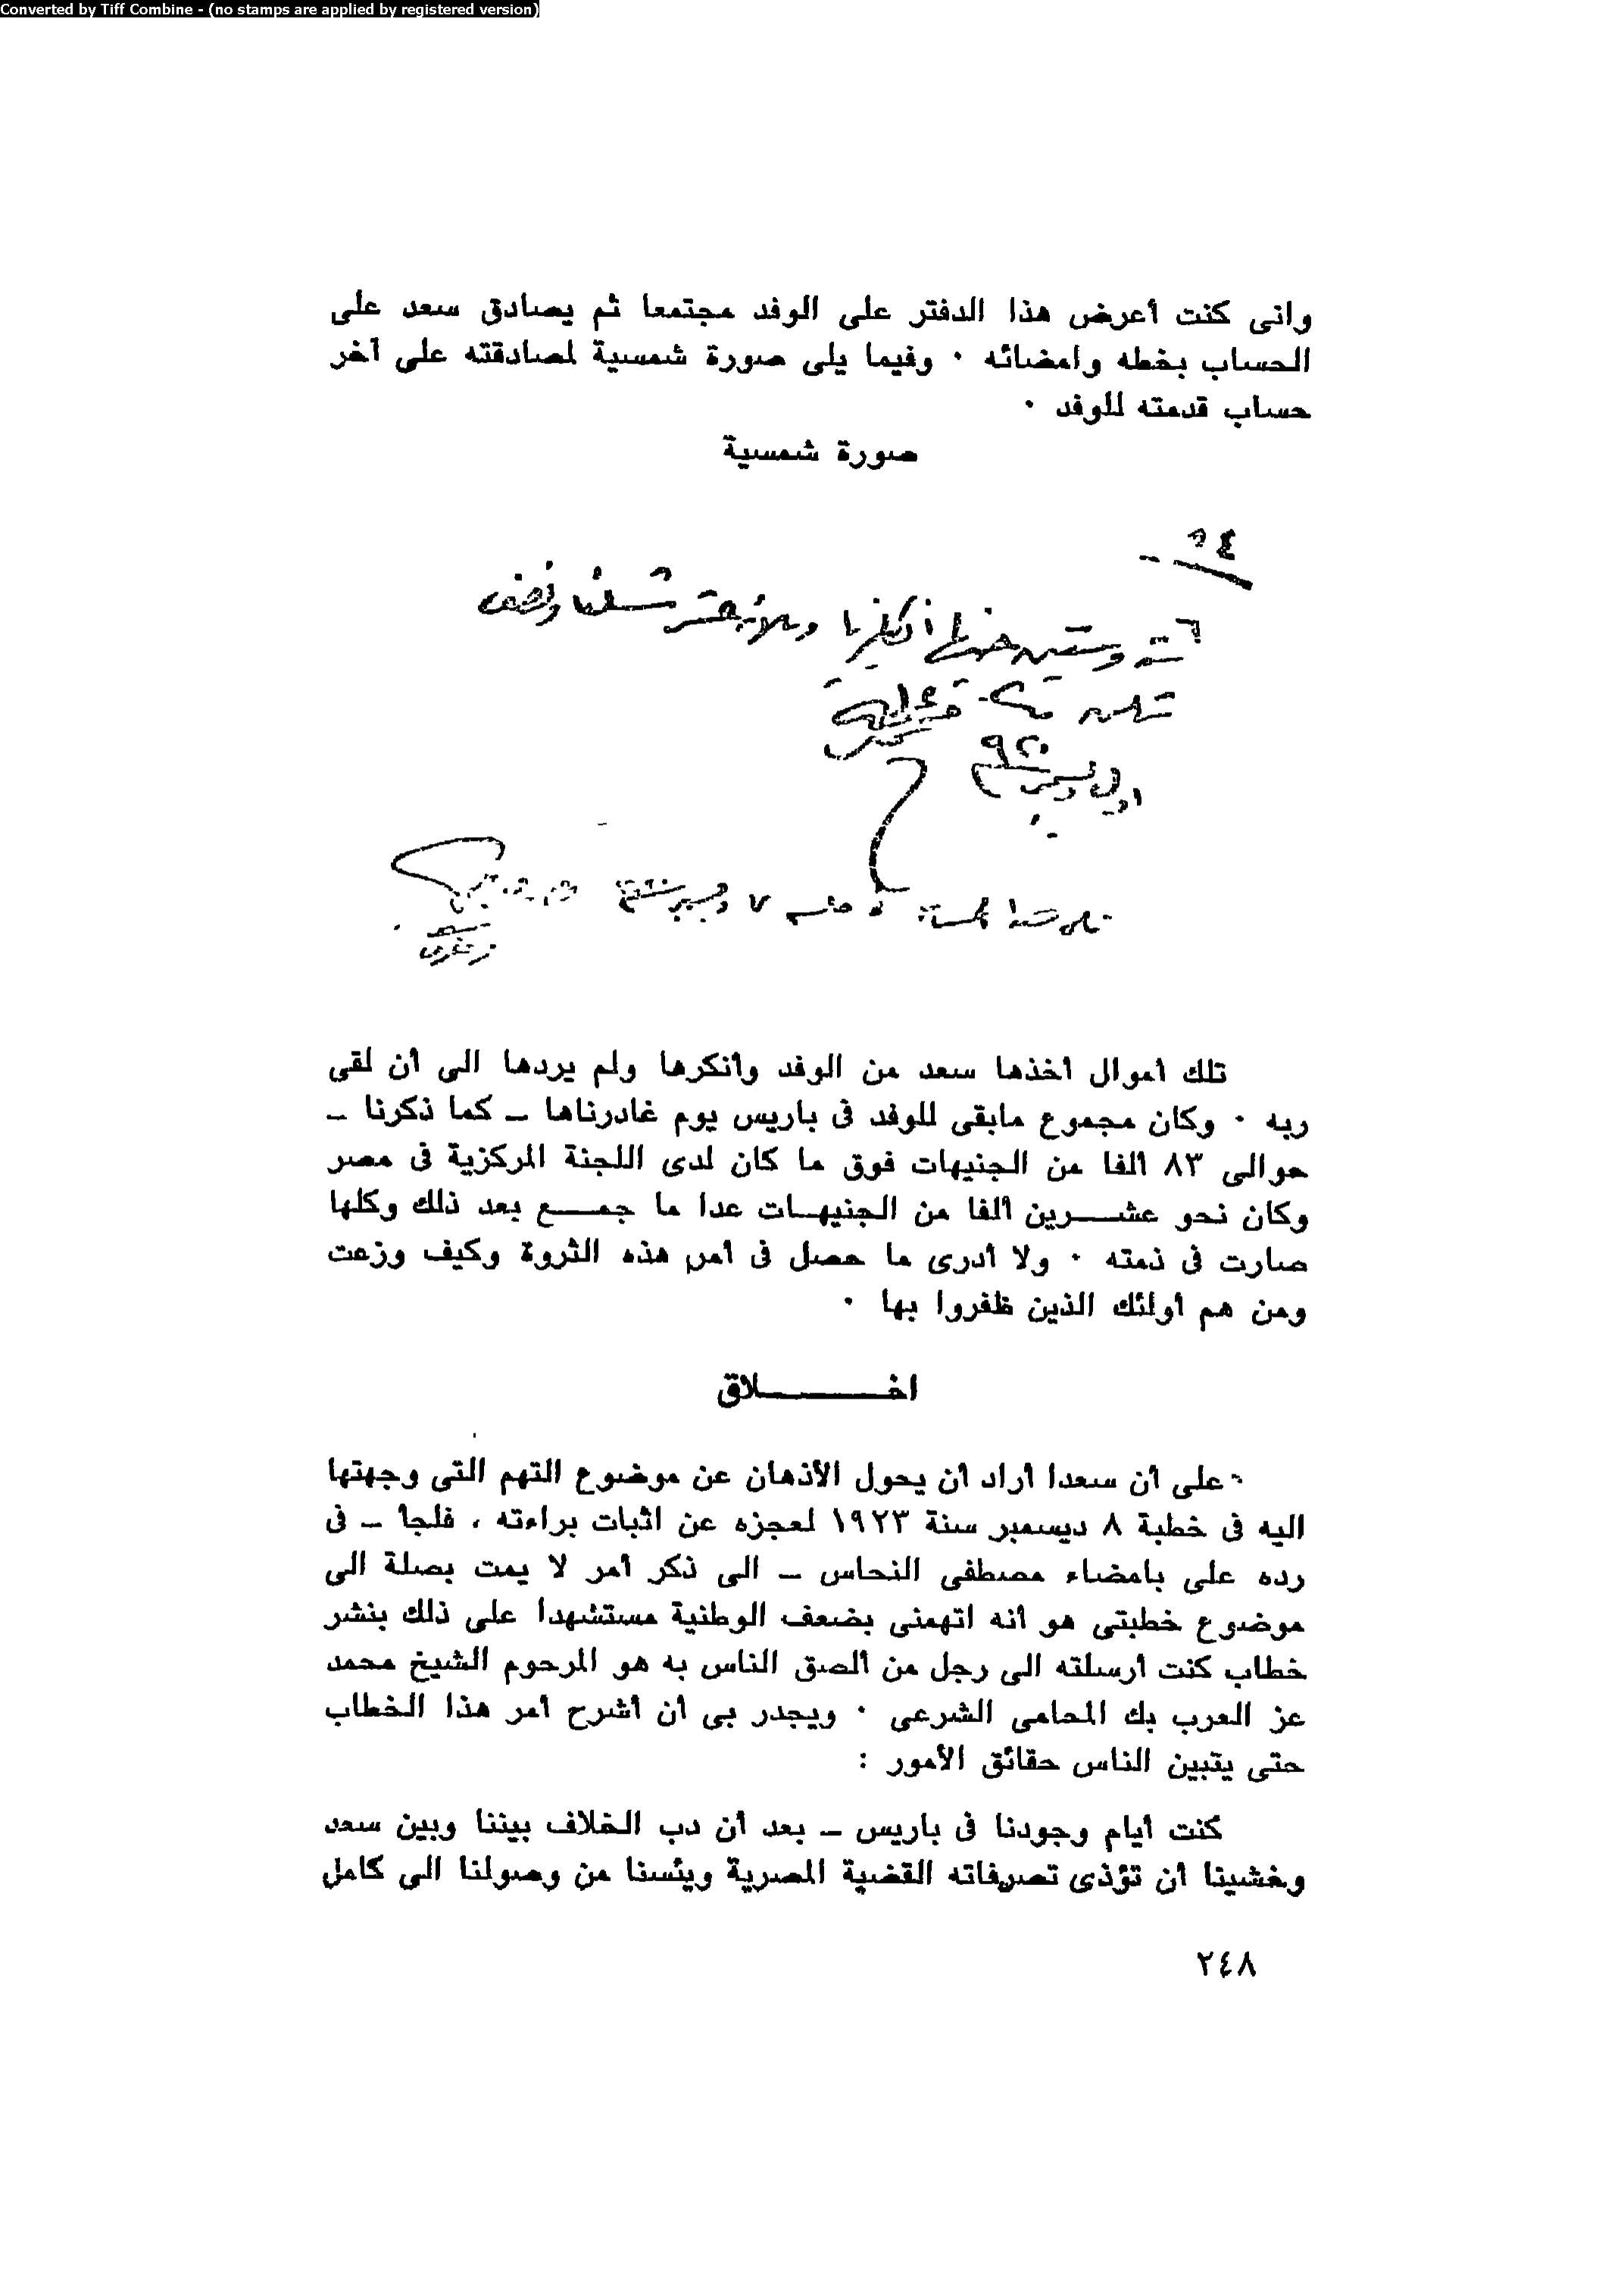 Converted by Tiff Combine - (no stamps are applied by registered version)
وانى كنت أعرض هذا الدفتر على الوفد مجتمعا ثم يصادق سعد على
الحساب بخطه وامضائه ٠ وفيما يلى صورة شمسية لمصادقته على آخر
حساب قدمته للوفد ٠
صورة شمسية
ستة وستين جنيها انكليزيا وثلاثة عشر شلنا ونصف
اول ديسمبر ٩٢٠
٧ ديسمبر
سعد
زغلول
تلك أموال أخذها سعد من الوفد وأنكرها ولم يردها الى أن لقى
ربه ٠ وكان مجموع مابقى للوفد فى باريس يوم غادرناها – كما ذكرنا –
حوالى ٨٣ ألفا من الجنيهات فوق ما كان لدى اللجنة المركزية فى مصر
وكان نحو عشـــرين ألفا من الجنيهـات عدا ما جمــع بعد ذلك وكلها
صارت فى ذمته ٠ ولا أدرى ما حصل فى أمر هذه الثروة وكيف وزعت
ومن هم أولئك الذين ظفروا بها ٠
اخـــــــلاق
على أن سعدا أراد أن يحول الأذهان عن موضوع التهم التى وجهتها
اليه فى خطبة ٨ ديسمبر سنة ١٩٢٣ لعجزه عن اثبات براءته ، فلجأ – فى
رده على بامضاء مصطفى النحاس – الى ذكر أمر لا يمت بصلة الى
موضوع خطبتى هو أنه اتهمنى بضعف الوطنية مستشهدا على ذلك بنشر
خطاب كنت أرسلته الى رجل من ألصق الناس به هو المرحوم الشيخ محمد
عز العرب بك المحامى الشرعى ٠ ويجدر بى أن أشرح أمر هذا الخطاب
حتى يتبين الناس حقائق الأمور :
كنت أيام وجودنا فى باريس – بعد أن دب الخلاف بيننا وبين سعد
وخشينا أن تؤذى تصرفاته القضية المصرية ويئسنا من وصولنا الى كامل
٢٤٨